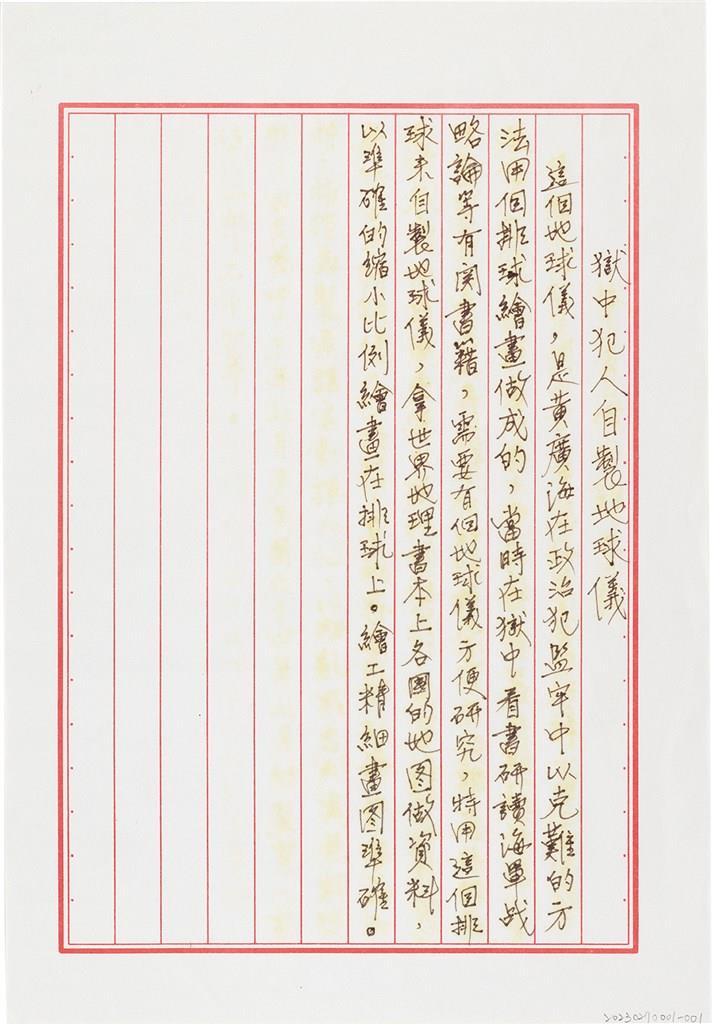 獄中犯人自製地球儀
這個地球儀，是黃廣海在政治犯監牢中以克難的方
法用個排球繪畫做成的，當時在獄中看書研讀海軍战
略論等有関書籍，需要有個地球儀方便研究，特用這個排
球来自製地球儀，拿世界地理書本上各國的地图做資料，
以準確的缩小比例繪畫在排球上。繪工精細畫图準確。
20230210001-001